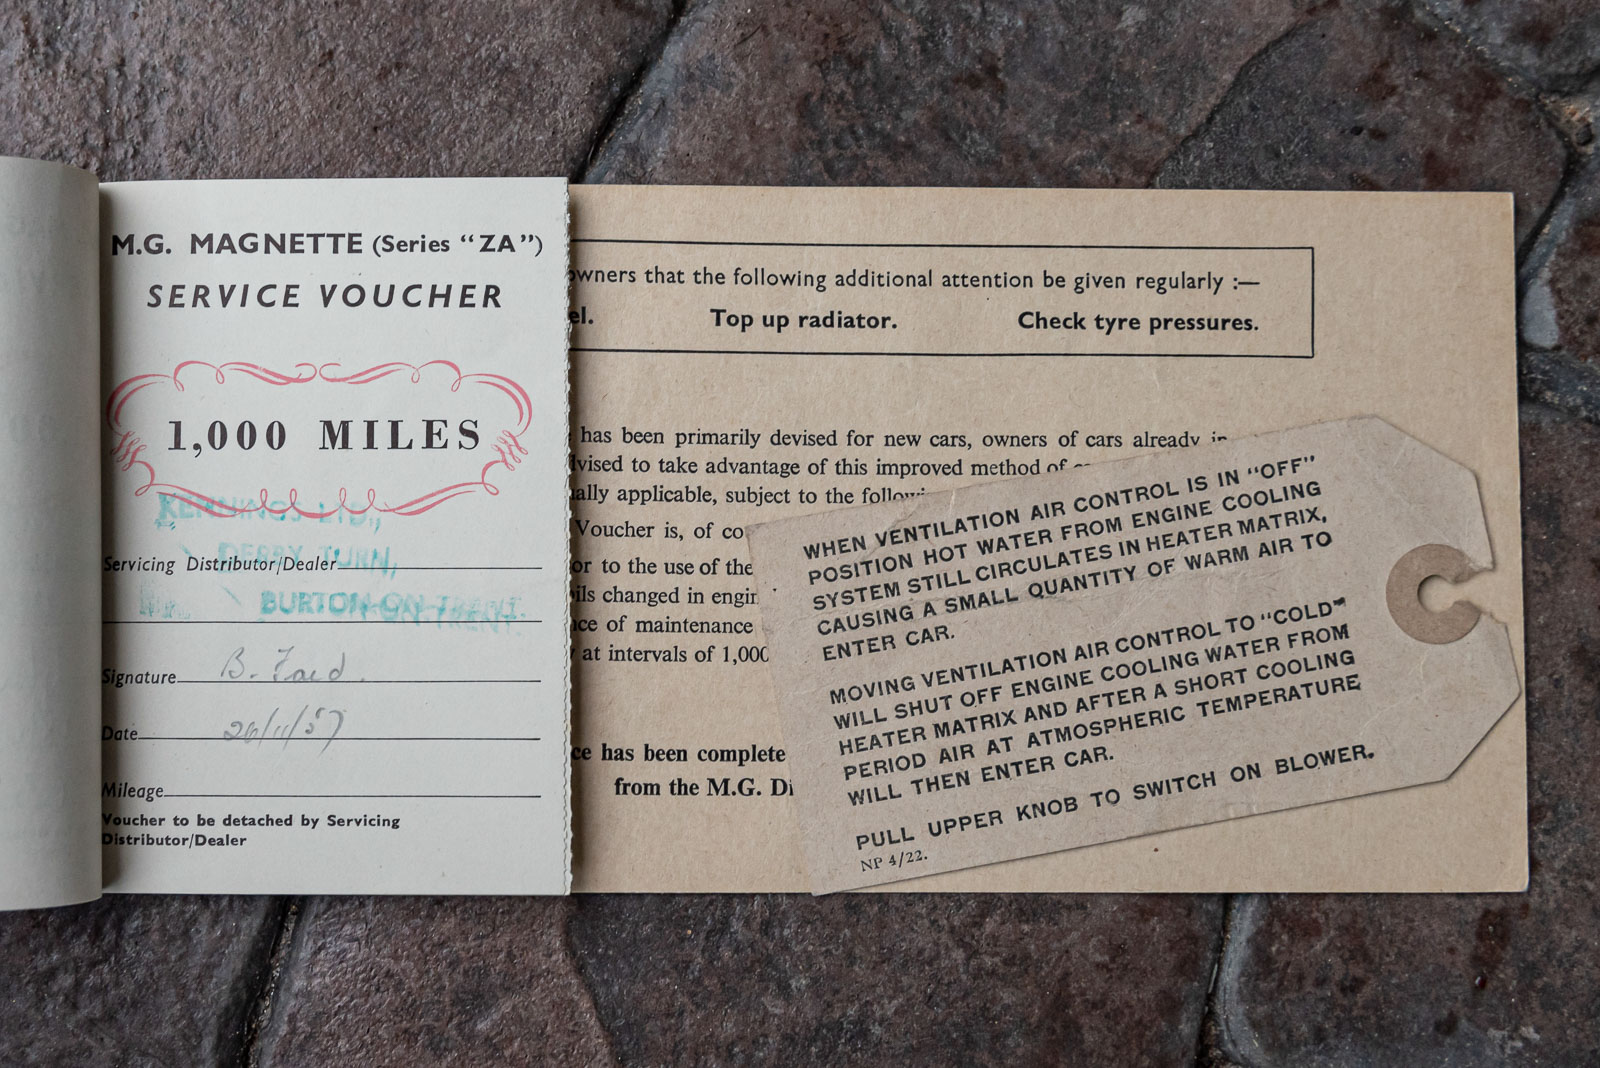 M.G. MAGNETTE (Series "ZA")
SERVICE VOUCHER
1,000 MILES
KENNINGS LTD.,
DERBY TURN,
Servicing Distributor/Dealer
BURTON-ON-TRENT.
Signature B.
Date 26/11/57
Mileage
Voucher to be detached by Servicing
Distributor/Dealer
owners that the following additional attention be given regularly :—
Top up radiator. Check tyre pressures.
has been primarily devised for new cars, owners of cars already in
advised to take advantage of this improved method of
applicable, subject to the
Voucher is, of
or to the use of the
oils changed in
of maintenance
at intervals of 1,000
has been
from the M.G.
WHEN VENTILATION AIR CONTROL IS IN "OFF"
POSITION HOT WATER FROM ENGINE COOLING
SYSTEM STILL CIRCULATES IN HEATER MATRIX,
CAUSING A SMALL QUANTITY OF WARM AIR TO
ENTER CAR.
MOVING VENTILATION AIR CONTROL TO "COLD"
WILL SHUT OFF ENGINE COOLING WATER FROM
HEATER MATRIX AND AFTER A SHORT COOLING
PERIOD AIR AT ATMOSPHERIC TEMPERATURE
WILL THEN ENTER CAR.
PULL UPPER KNOB TO SWITCH ON BLOWER.
NP 4/22.